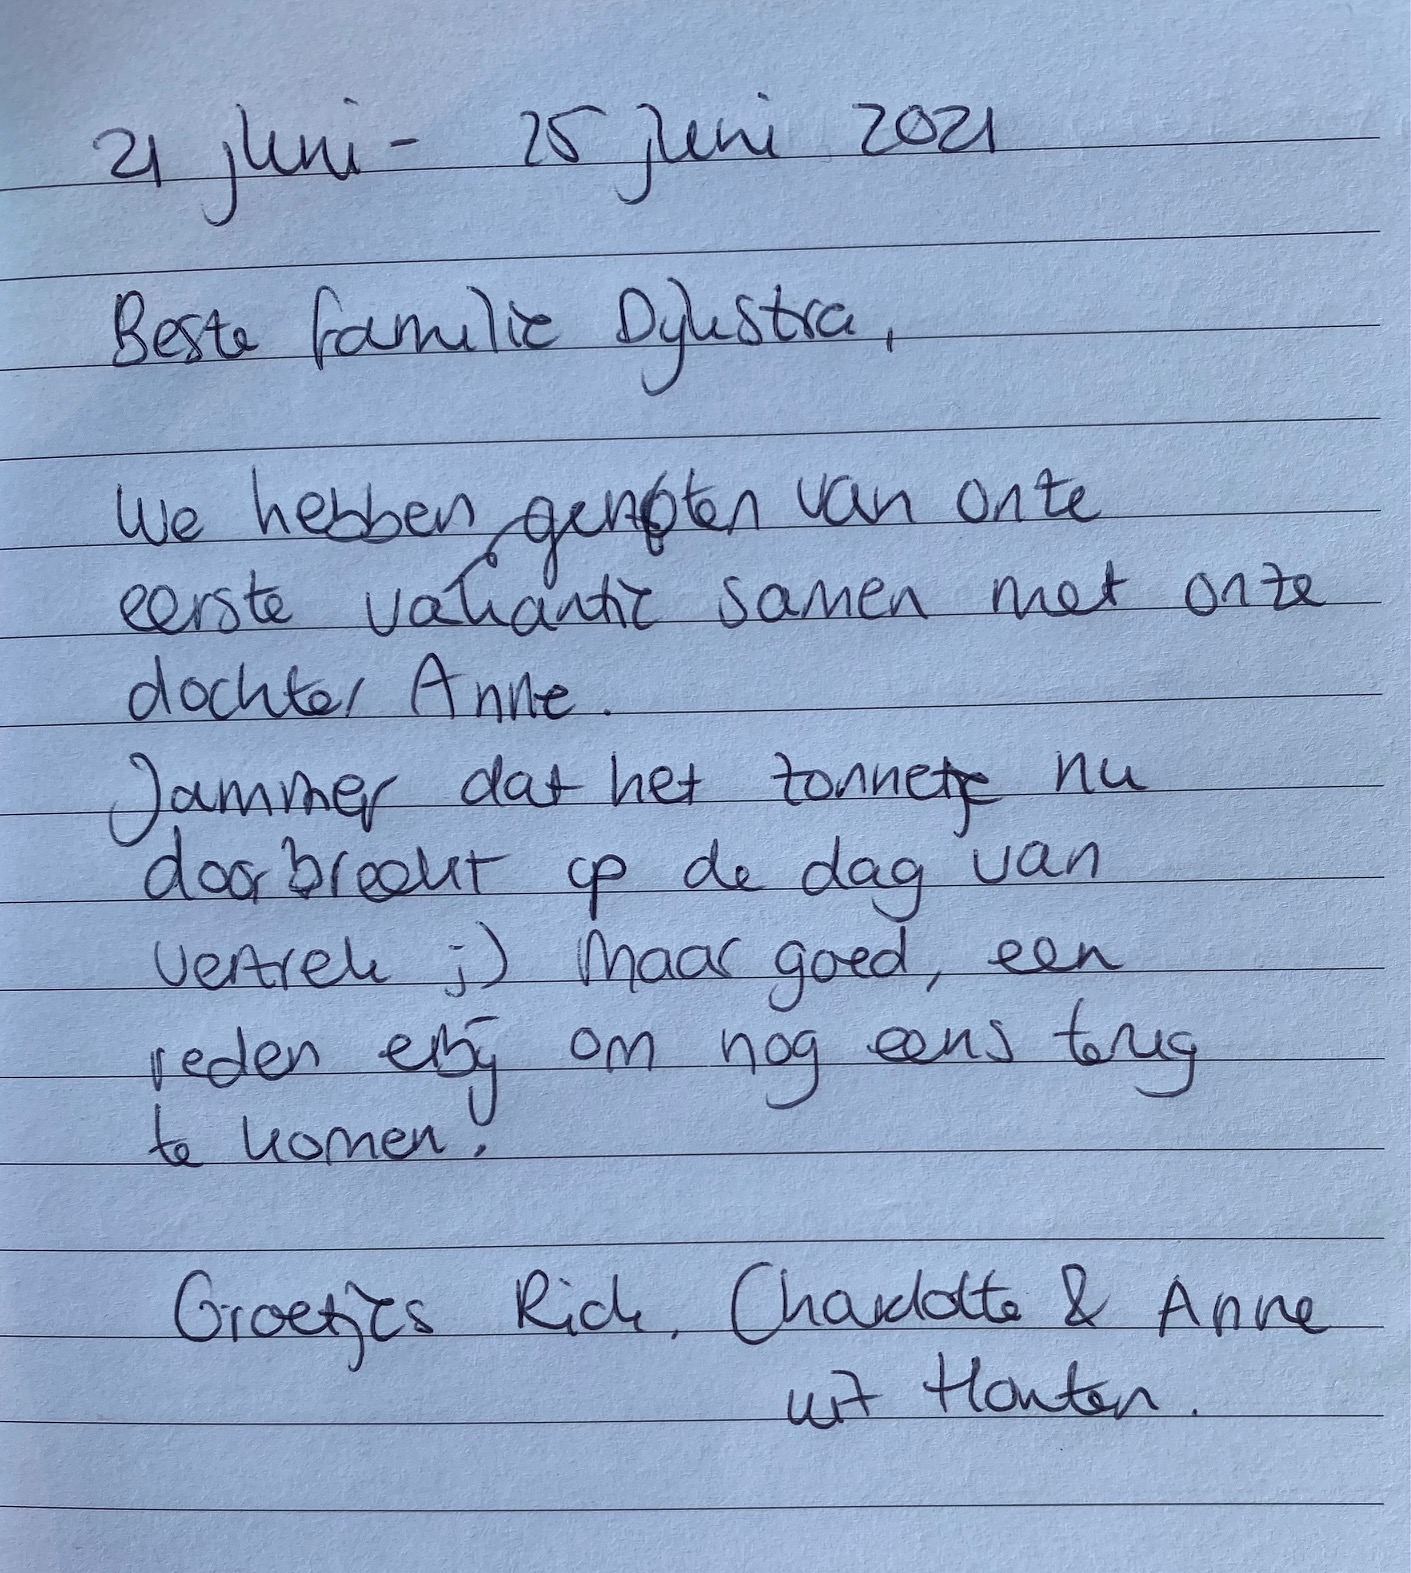 21 juni - 25 juni 2021
Beste familie Dijkstra,
We hebben genoten van onze
eerste vakantie samen met onze
dochter Anne.
Jammer dat het zonnetje nu
doorbreekt op de dag van
vertrek ;) Maar goed, een
reden erbij om nog eens terug
te komen!
Groetjes Rick, Charlotte & Anne
uit Houten.